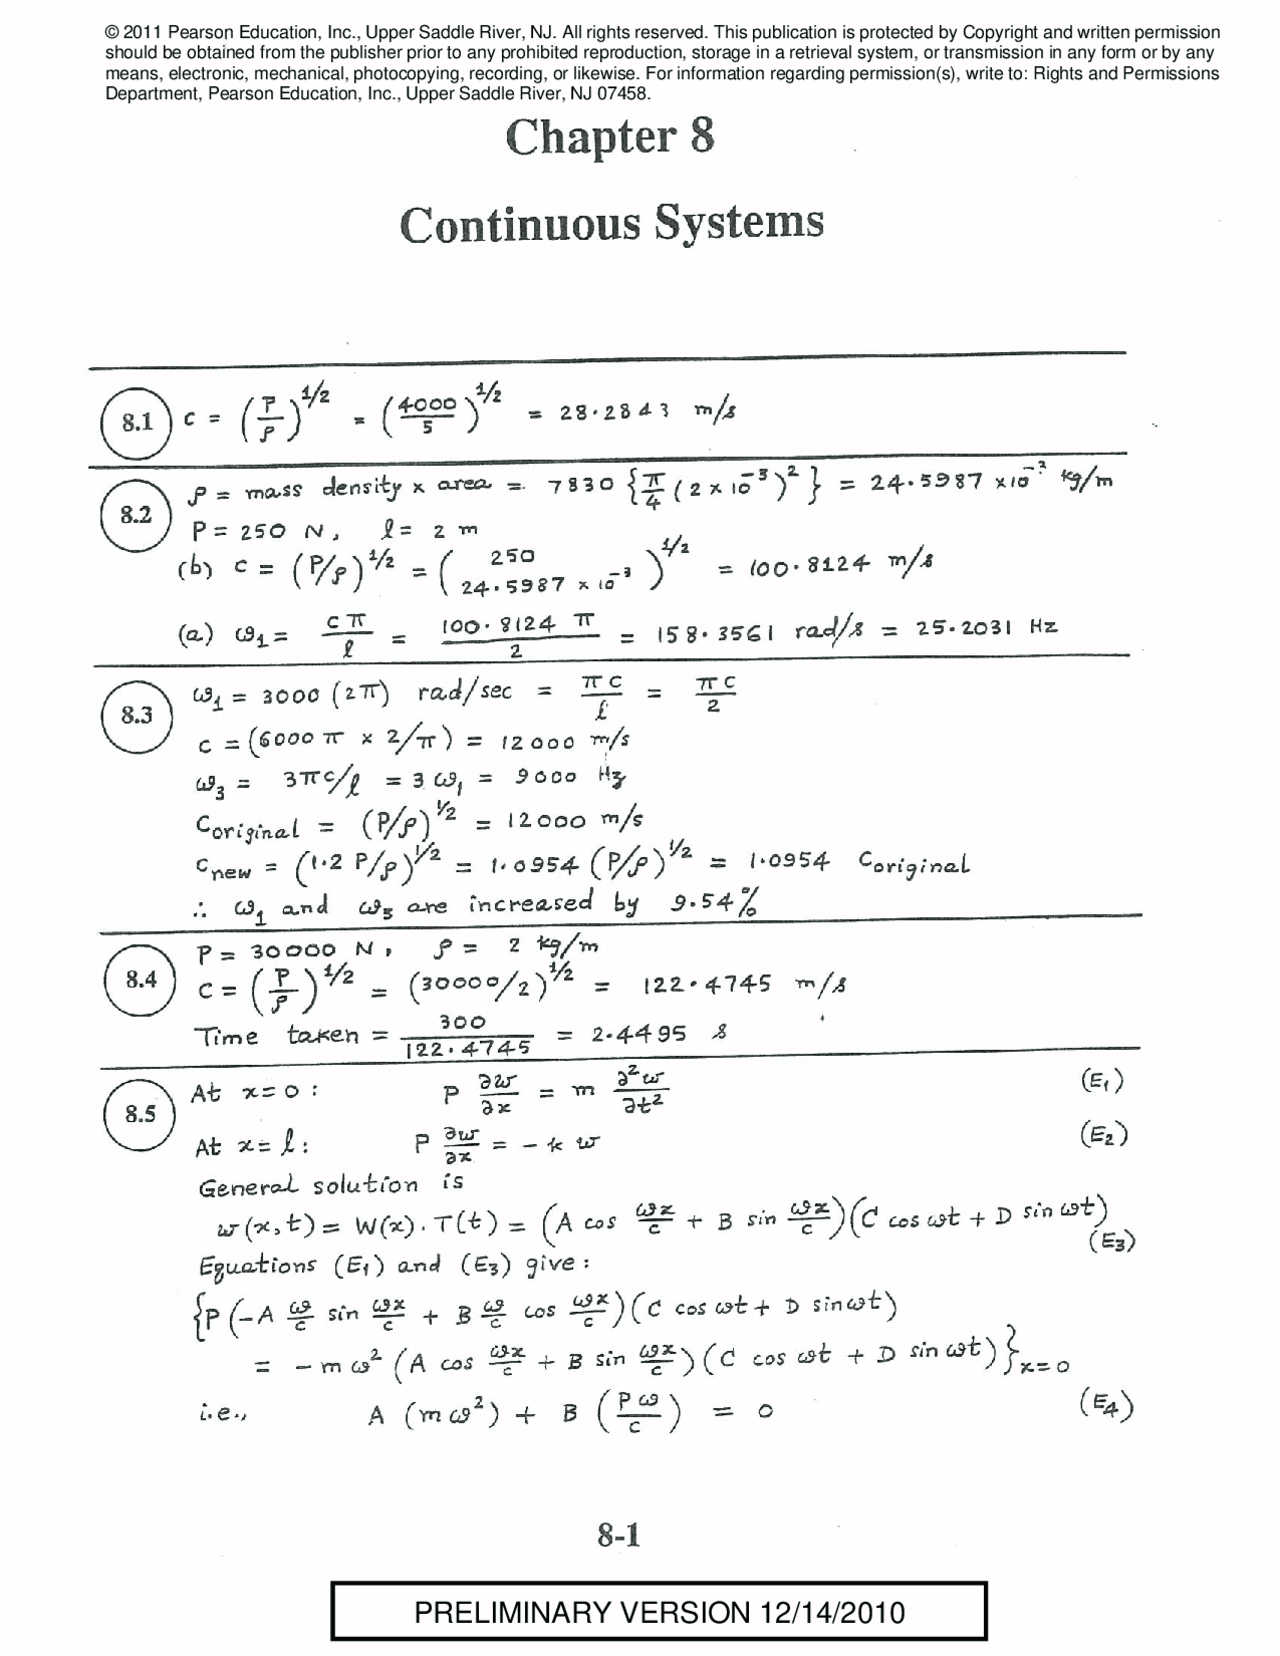 © 2011 Pearson Education, Inc., Upper Saddle River, NJ. All rights reserved. This publication is protected by Copyright and written permission
should be obtained from the publisher prior to any prohibited reproduction, storage in a retrieval system, or transmission in any form or by any
means, electronic, mechanical, photocopying, recording, or likewise. For information regarding permission(s), write to: Rights and Permissions
Department, Pearson Education, Inc., Upper Saddle River, NJ 07458.
Chapter 8
Continuous Systems
8.1 c = (P/ρ)^{1/2} = (4000/5)^{1/2} = 28.2843 m/s
8.2 ρ = mass density × area = 7830 {π/4 (2 × 10^{-3})^2} = 24.5987 × 10^{-3} kg/m
P = 250 N, ℓ = 2 m
(b) c = (P/ρ)^{1/2} = (250 / 24.5987 × 10^{-3})^{1/2} = 100.8124 m/s
(a) ω₁ = cπ/ℓ = 100.8124 π / 2 = 158.3561 rad/s = 25.2031 Hz
8.3 ω₁ = 3000 (2π) rad/sec = πc/ℓ = πc/2
c = (6000 π × 2/π) = 12000 m/s
ω₃ = 3πc/ℓ = 3 ω₁ = 9000 Hz
c_original = (P/ρ)^{1/2} = 12000 m/s
c_new = (1.2 P/ρ)^{1/2} = 1.0954 (P/ρ)^{1/2} = 1.0954 c_original
∴ ω₁ and ω₃ are increased by 9.54%
8.4 P = 30000 N, ρ = 2 kg/m
c = (P/ρ)^{1/2} = (30000/2)^{1/2} = 122.4745 m/s
Time taken = 300 / 122.4745 = 2.4495 s
8.5 At x = 0: P ∂w/∂x = m ∂²w/∂t² (E₁)
At x = ℓ: P ∂w/∂x = - k w (E₂)
General solution is
w(x,t) = W(x) · T(t) = (A cos ωx/c + B sin ωx/c)(C cos ωt + D sin ωt)
(E₃)
Equations (E₁) and (E₃) give:
{P (-A ω/c sin ωx/c + B ω/c cos ωx/c)(C cos ωt + D sin ωt)
= - m ω² (A cos ωx/c + B sin ωx/c)(C cos ωt + D sin ωt)}_{x=0}
i.e., A (m ω²) + B (P ω/c) = 0 (E₄)
8-1
PRELIMINARY VERSION 12/14/2010